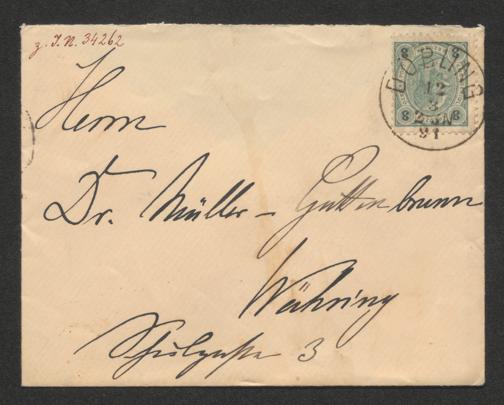 z. I. N. 34262
8 8
DÖBLING
12
3
2-3N
91
8 8
Herrn
Dr. Müller-Guttenbrunn
Währing
Schulgasse 3